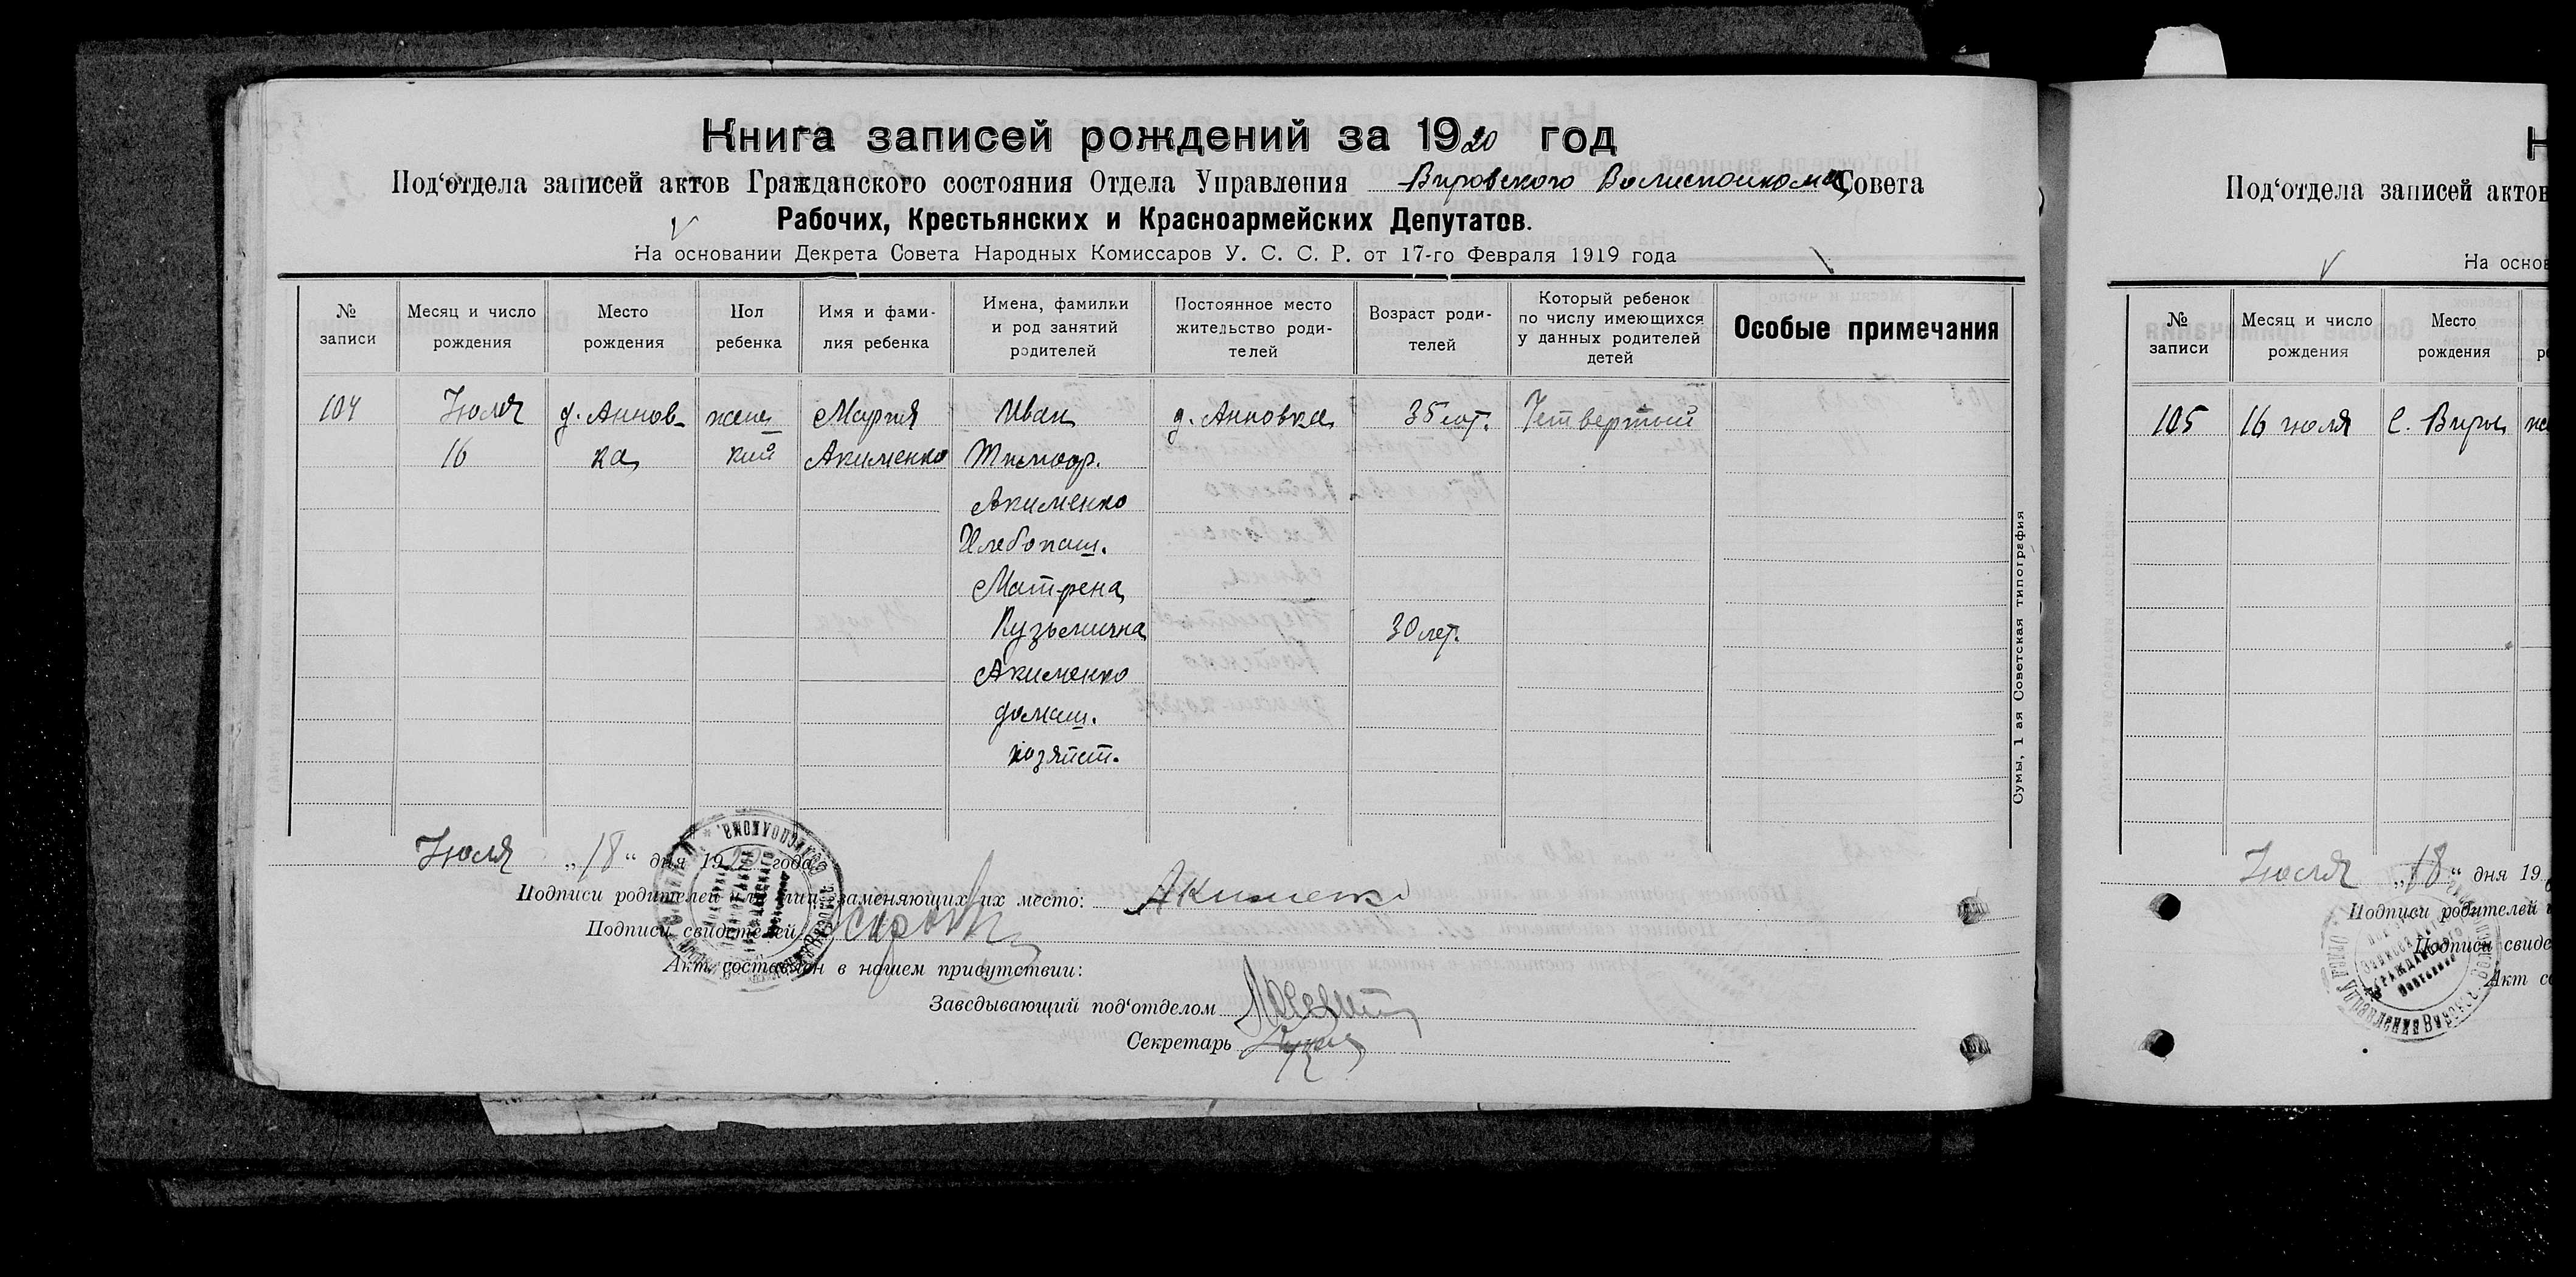 Книга записей рождений за 1920 год
Под‘отдела записей актов Гражданского состояния Отдела Управления Вировского Волисполкома Совета
Рабочих, Крестьянских и Красноармейских Депутатов.
На основании Декрета Совета Народных Комиссаров У. С. С. Р. от 17-го Февраля 1919 года
№ записи
Месяц и число рождения
Место рождения
Пол ребенка
Имя и фами-
лия ребенка
Имена, фамилии
и род занятий
родителей
Постоянное место
жительство роди-
телей
Возраст роди-
телей
Который ребенок
по числу имеющихся
у данных родителей
детей
Особые примечания
104 Июля д. Аннов- женс Мария Иван д. Анновка 35 лет. Четвертый
16 ка кий Акименко Тимофр.
Акименко
Хлебопаш.
Матрена
Кузьминична 30 лет.
Акименко
домаш.
хозяйст.
Июля „18“ дня 1920 года
Подписи родителей или лиц, заменяющих их место: Акименко
Подписи свидетелей:
Акт составлен в нашем присутствии:
Заведывающий под‘отделом
Секретарь
Сумы, 1 ая Советская типография
Под‘отдела записей актов
На основ
№ записи
Месяц и число рождения
Место рождения
105 16 июля С. Виры
Июля „18“ дня 19
Подписи родителей
Подписи свиде
Акт со